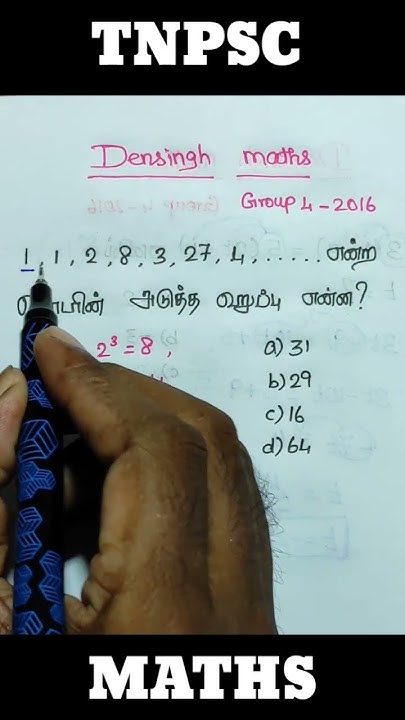 TNPSC
Densingh maths
Group 4 - 2016
1, 1, 2, 8, 3, 27, 4, ...... என்ற
அடுத்த உறுப்பு என்ன?
2³ = 8,
a) 31
b) 29
c) 16
d) 64
MATHS